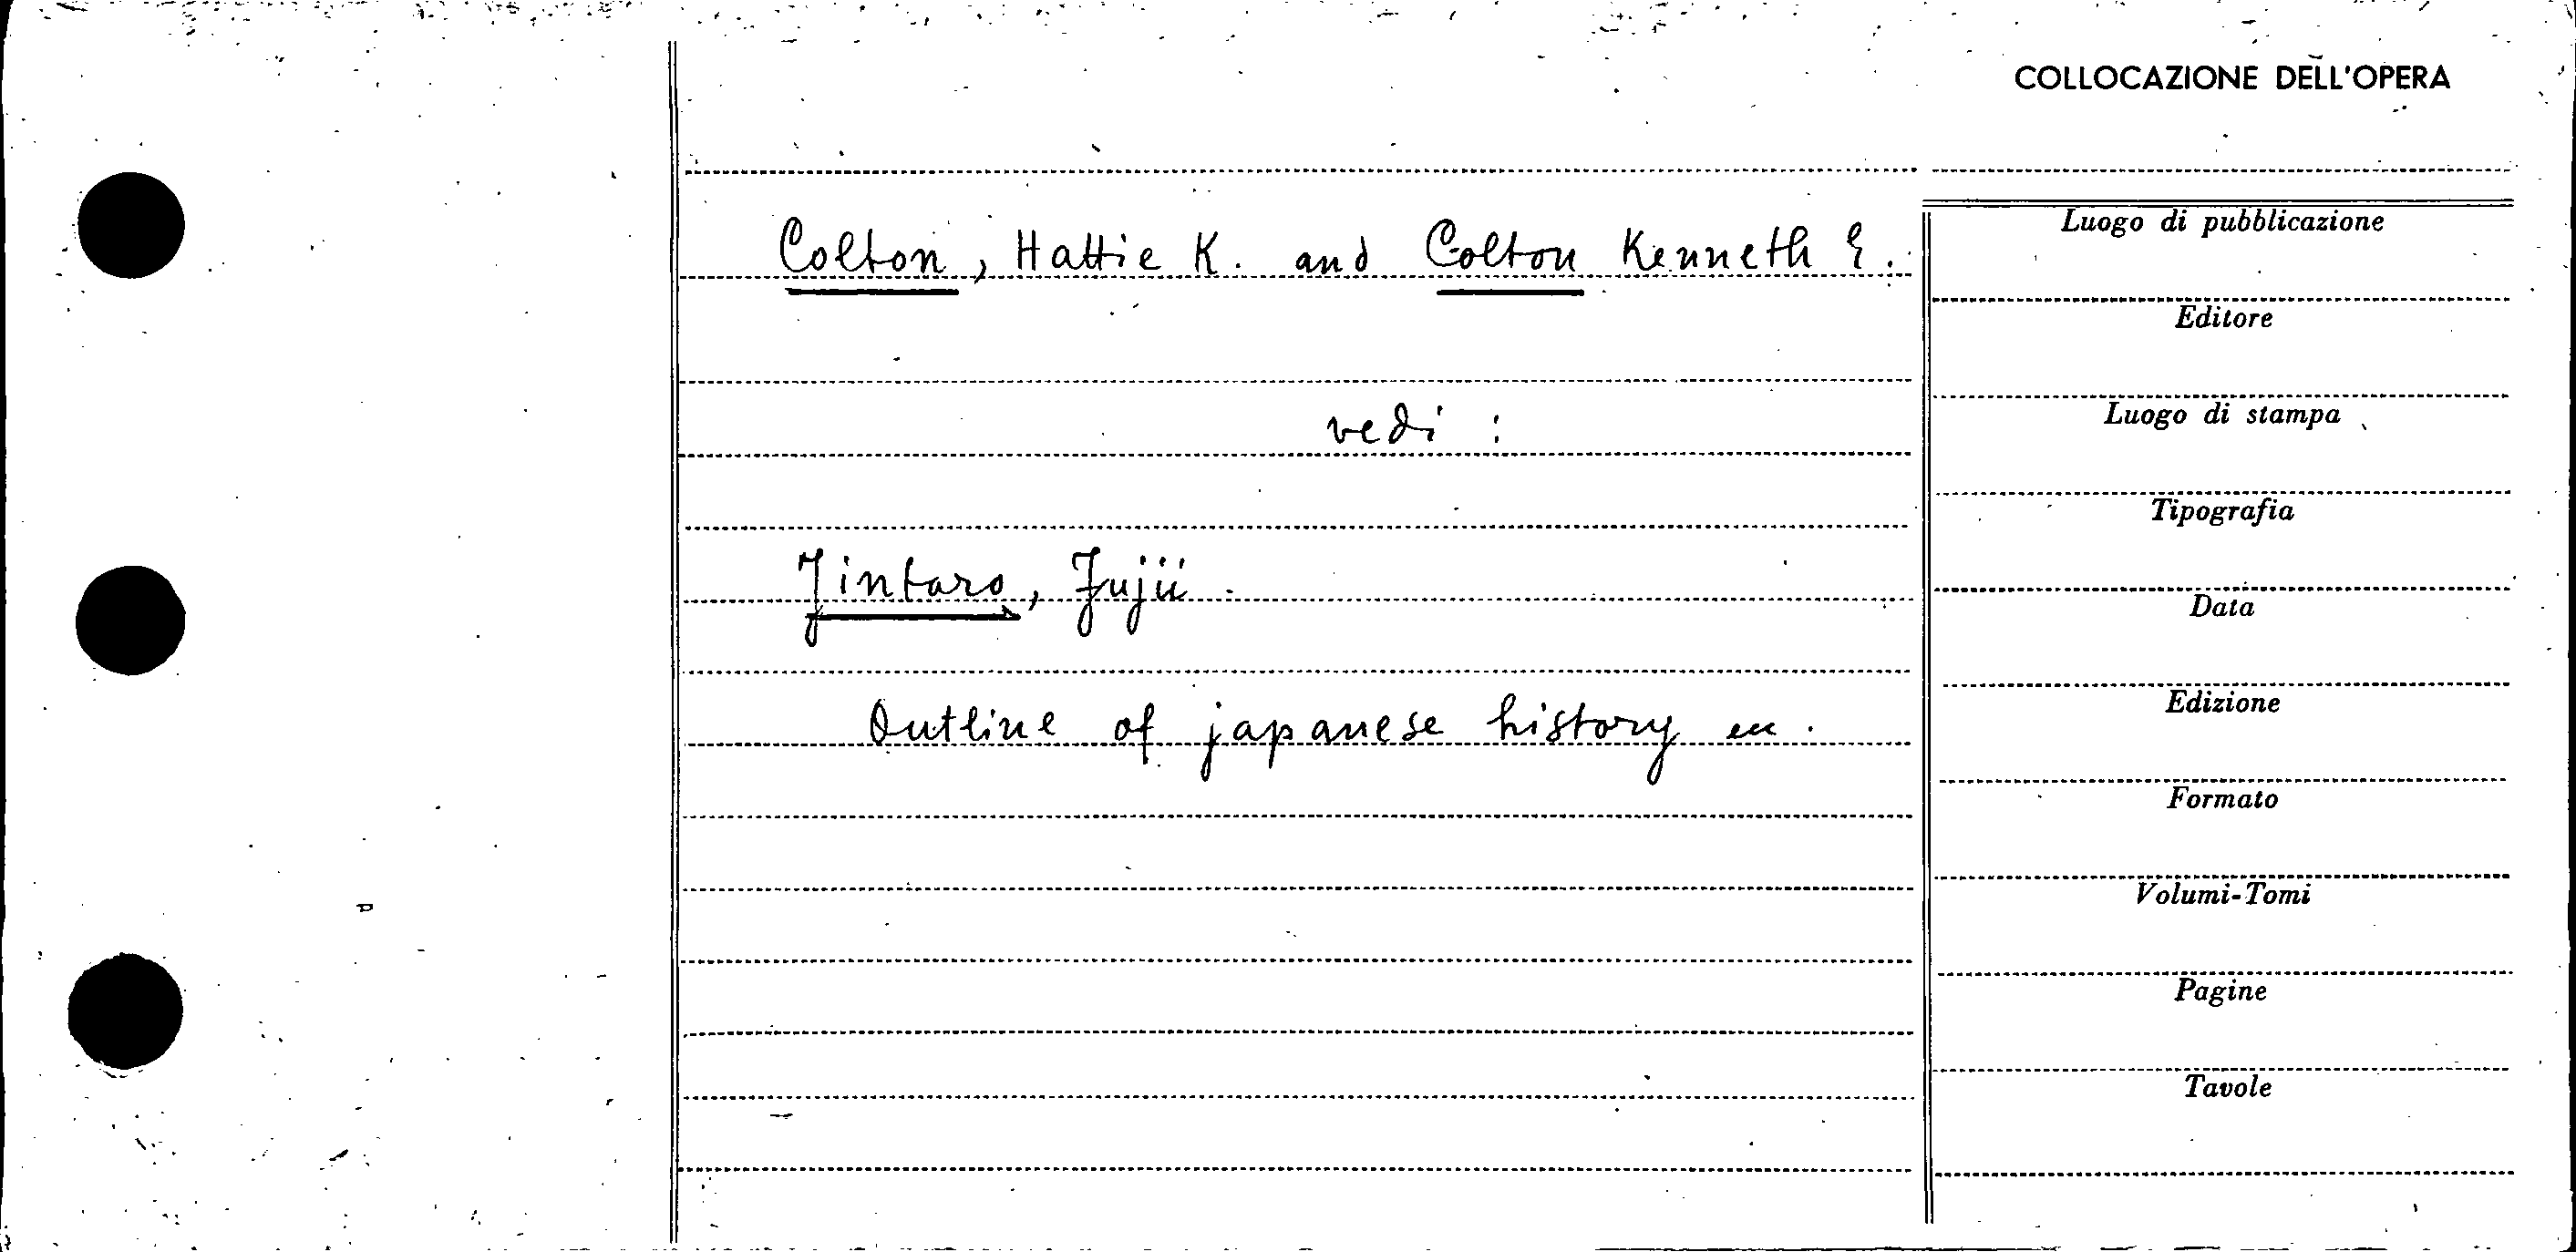 COLLOCAZIONE DELL'OPERA
Colton, Hattie K. and Colton Kenneth E.
vedi :
Jintaro, Fujii.
Outline of japanese history
Luogo di pubblicazione
Editore
Luogo di stampa
Tipografia
Data
Edizione
Formato
Volumi-Tomi
Pagine
Tavole